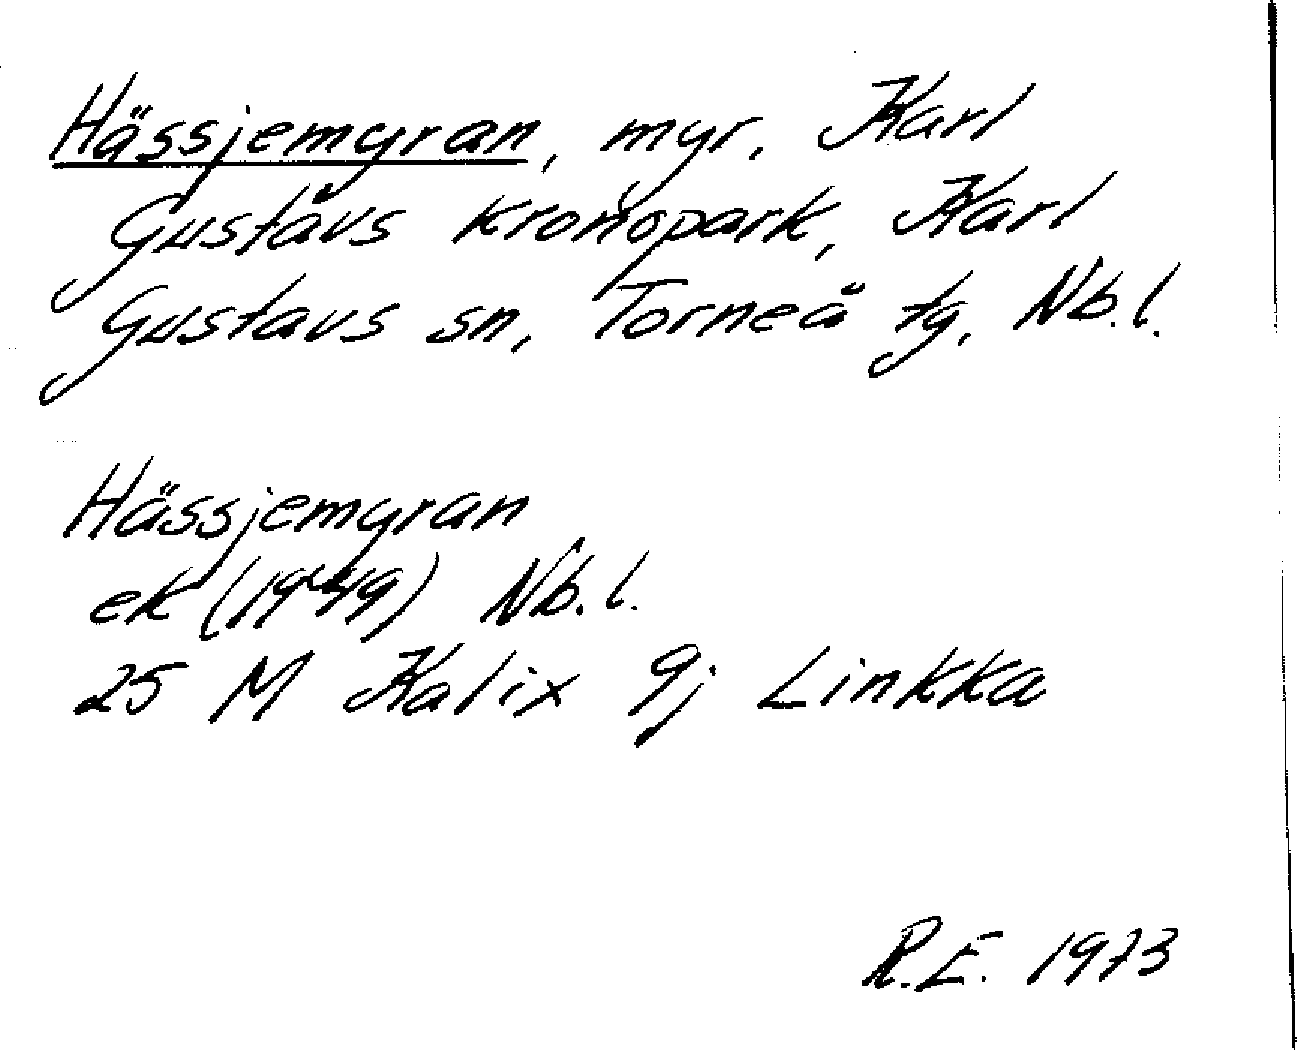 Hässjemyran, myr, Karl
Gustavs kronopark, Karl
Gustavs sn, Torneå tg, Nb.l.
Hässjemyran
ek (1949) Nb.l.
25 M Kalix 9j Linkka
R.E. 1973